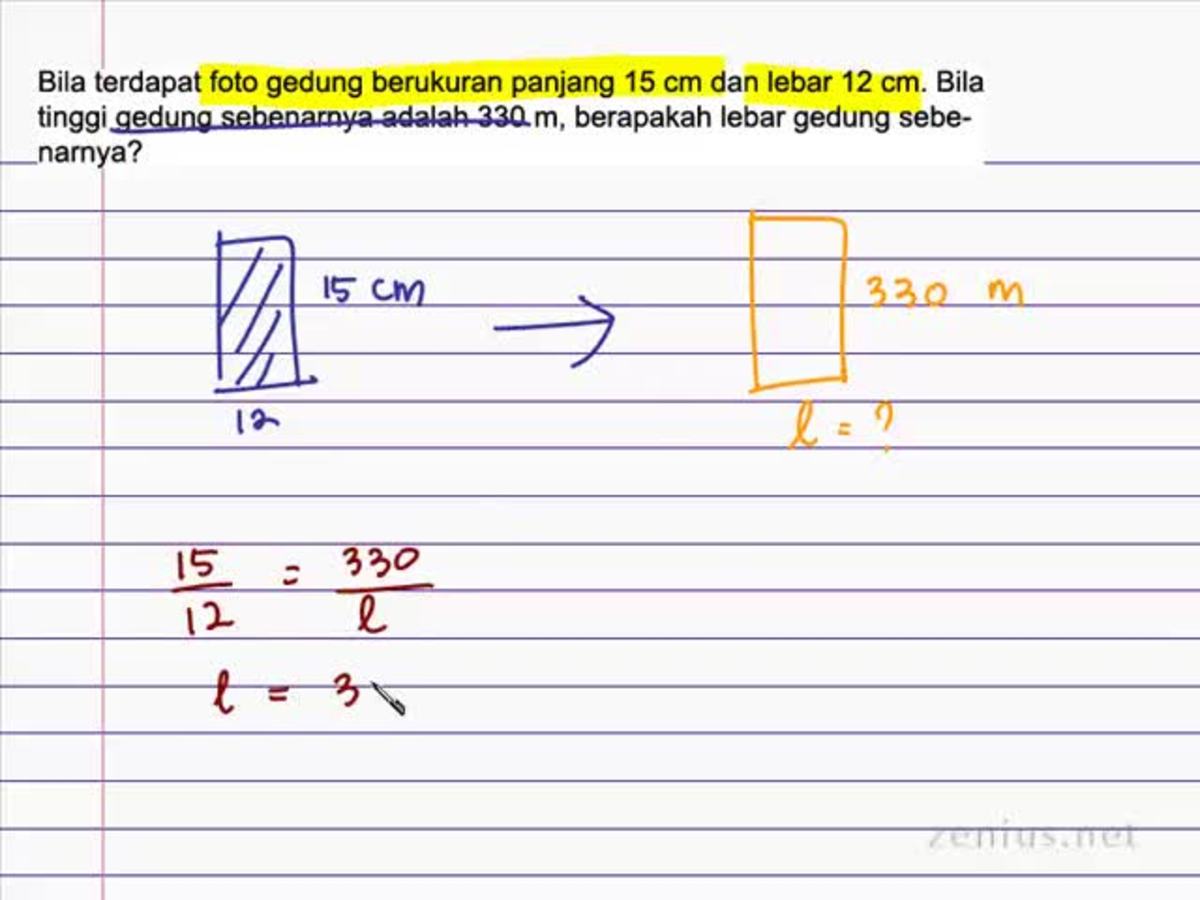 Bila terdapat foto gedung berukuran panjang 15 cm dan lebar 12 cm. Bila
tinggi gedung sebenarnya adalah 330 m, berapakah lebar gedung sebe-
narnya?
15 cm
12
330 m
l = ?
15/12 = 330/l
l = 3
zenius.net